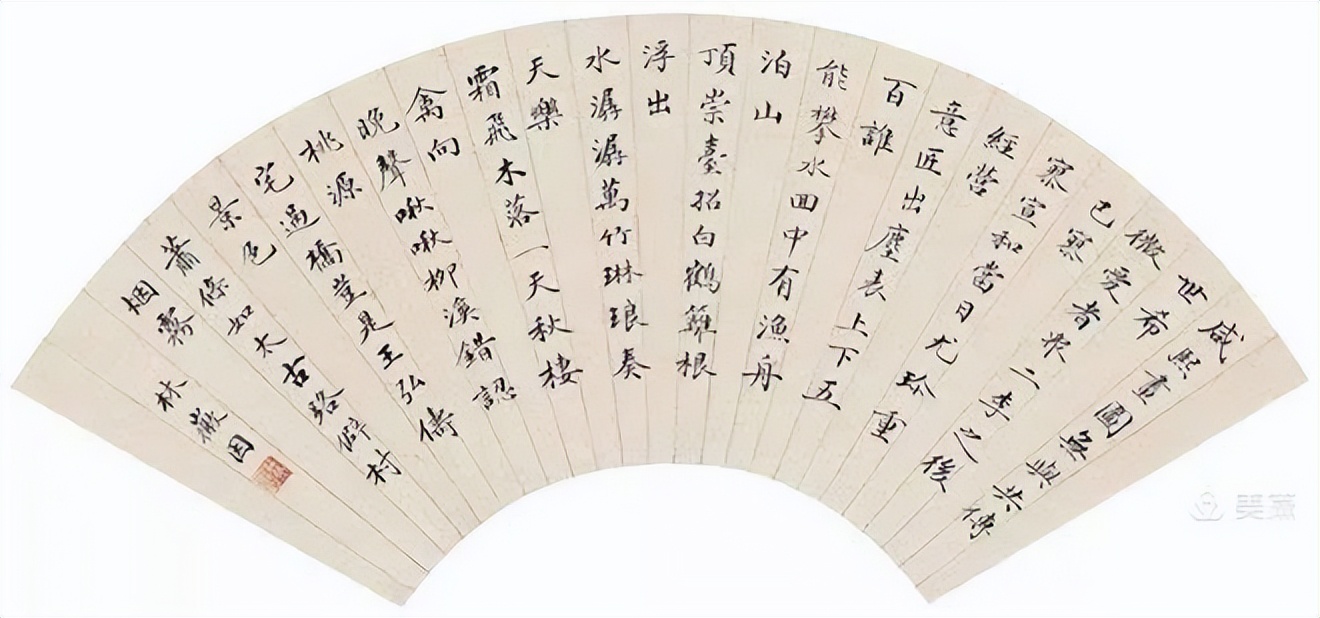 咸熙畫圖無與共傳
世希
微愛者眾二李之後
已寥
寥宣和當日尤珍重
經營
意匠出塵表上下五
百誰
能攀水回中有漁舟
泊山
頂崇臺招白鶴籬根
浮出
水潺潺萬竹琳琅奏
天樂
霜飛木落一天秋棲
禽向
晚聲啾啾柳溪錯認
桃源
宅過橋豈是王弘儔
景色
蕭條如太古路僻村
烟霧
林徽因